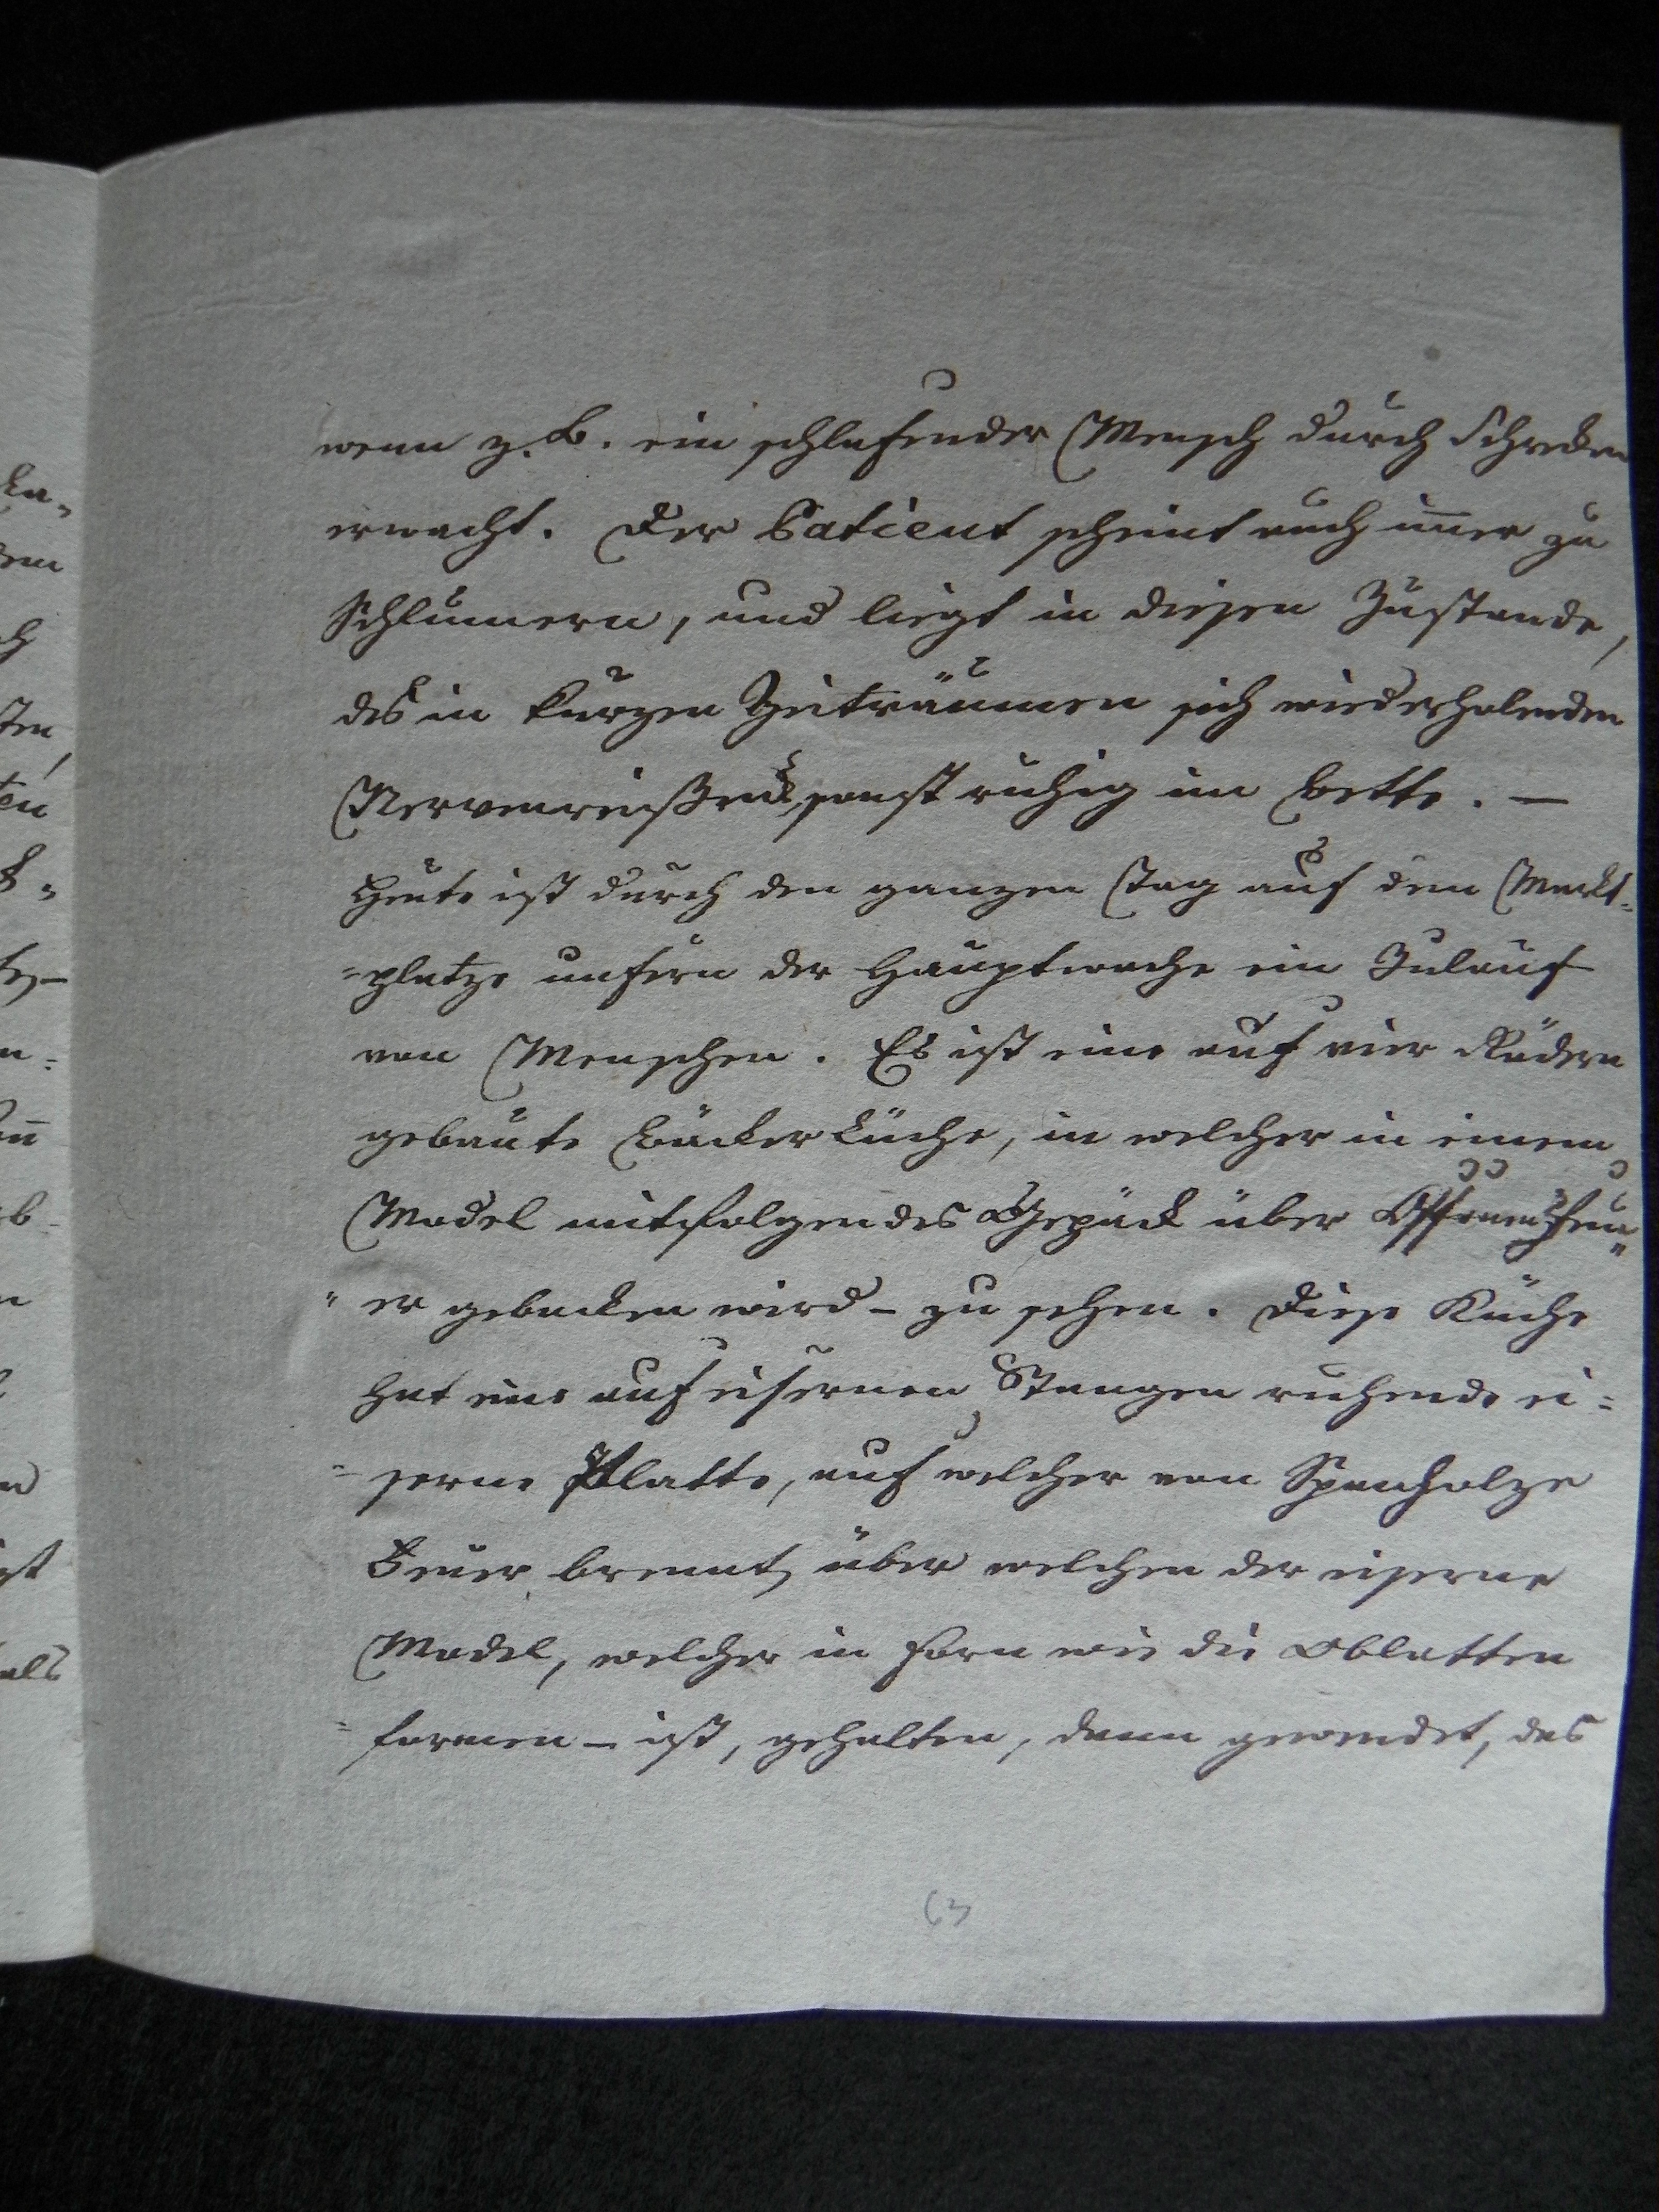 wenn z. B. ein schlafender Mensch durch Schrecken
erwacht. Der Patient scheint auch im̄er zu
Schlum̄ern, und liegt in diesen Zustande,
des in kurzen Zeiträumen sich wiederholenden
Nervenreißens, sonst ruhig im Bette. —
Heute ist durch den ganzen Tag auf dem Markt-
-platze unfern der Hauptwache ein Zulauf
von Menschen. Es ist eine auf vier Rädern
gebaute Bäckerküche, in welcher in einem
Model mitfolgendes Gepäck über Offenen Feu-
"er gebacken wird – zu sehen. Diese Küche
hat eine auf eisernen Stangen ruhende ei=
-serne Platte, auf welcher von Spanholze
Feuer brennt, über welchen der eiserne
Model, welcher in Form wie die Oblatten
-formen – ist, gehalten, dann gewendet, das
63
ka-
dem
ch
sten,
ten
b-
n
ist
als